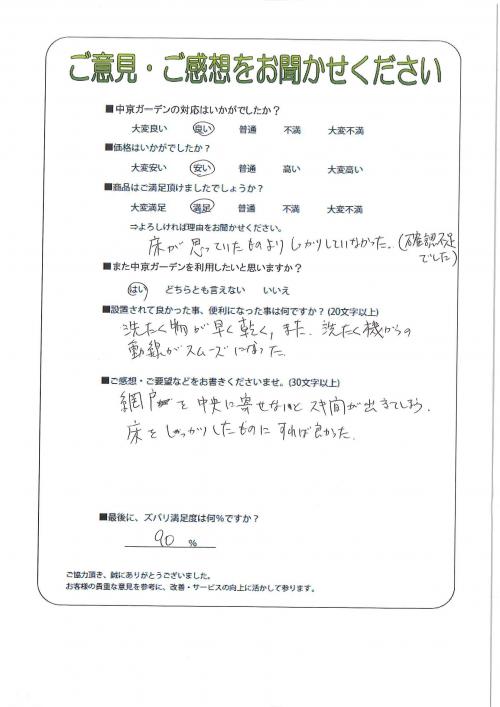 ご意見・ご感想をお聞かせください
■中京ガーデンの対応はいかがでしたか？
大変良い 良い 普通 不満 大変不満
■価格はいかがでしたか？
大変安い 安い 普通 高い 大変高い
■商品はご満足頂けましたでしょうか？
大変満足 満足 普通 不満 大変不満
⇒よろしければ理由をお聞かせください。
床が思っていたものよりしっかりしていなかった。(確認不足
でした)
■また中京ガーデンを利用したいと思いますか？
はい どちらとも言えない いいえ
■設置されて良かった事、便利になった事は何ですか？(20文字以上)
洗たく物が早く乾く,また、洗たく機からの
動線がスムーズになった。
■ご感想・ご要望などをお書きくださいませ。(30文字以上)
網戸を中央に寄せないとスキ間が出きてしまう。
床をしっかりしたものにすれば良かった。
■最後に、ズバリ満足度は何％ですか？
90 ％
ご協力頂き、誠にありがとうございました。
お客様の貴重な意見を参考に、改善・サービスの向上に活かして参ります。